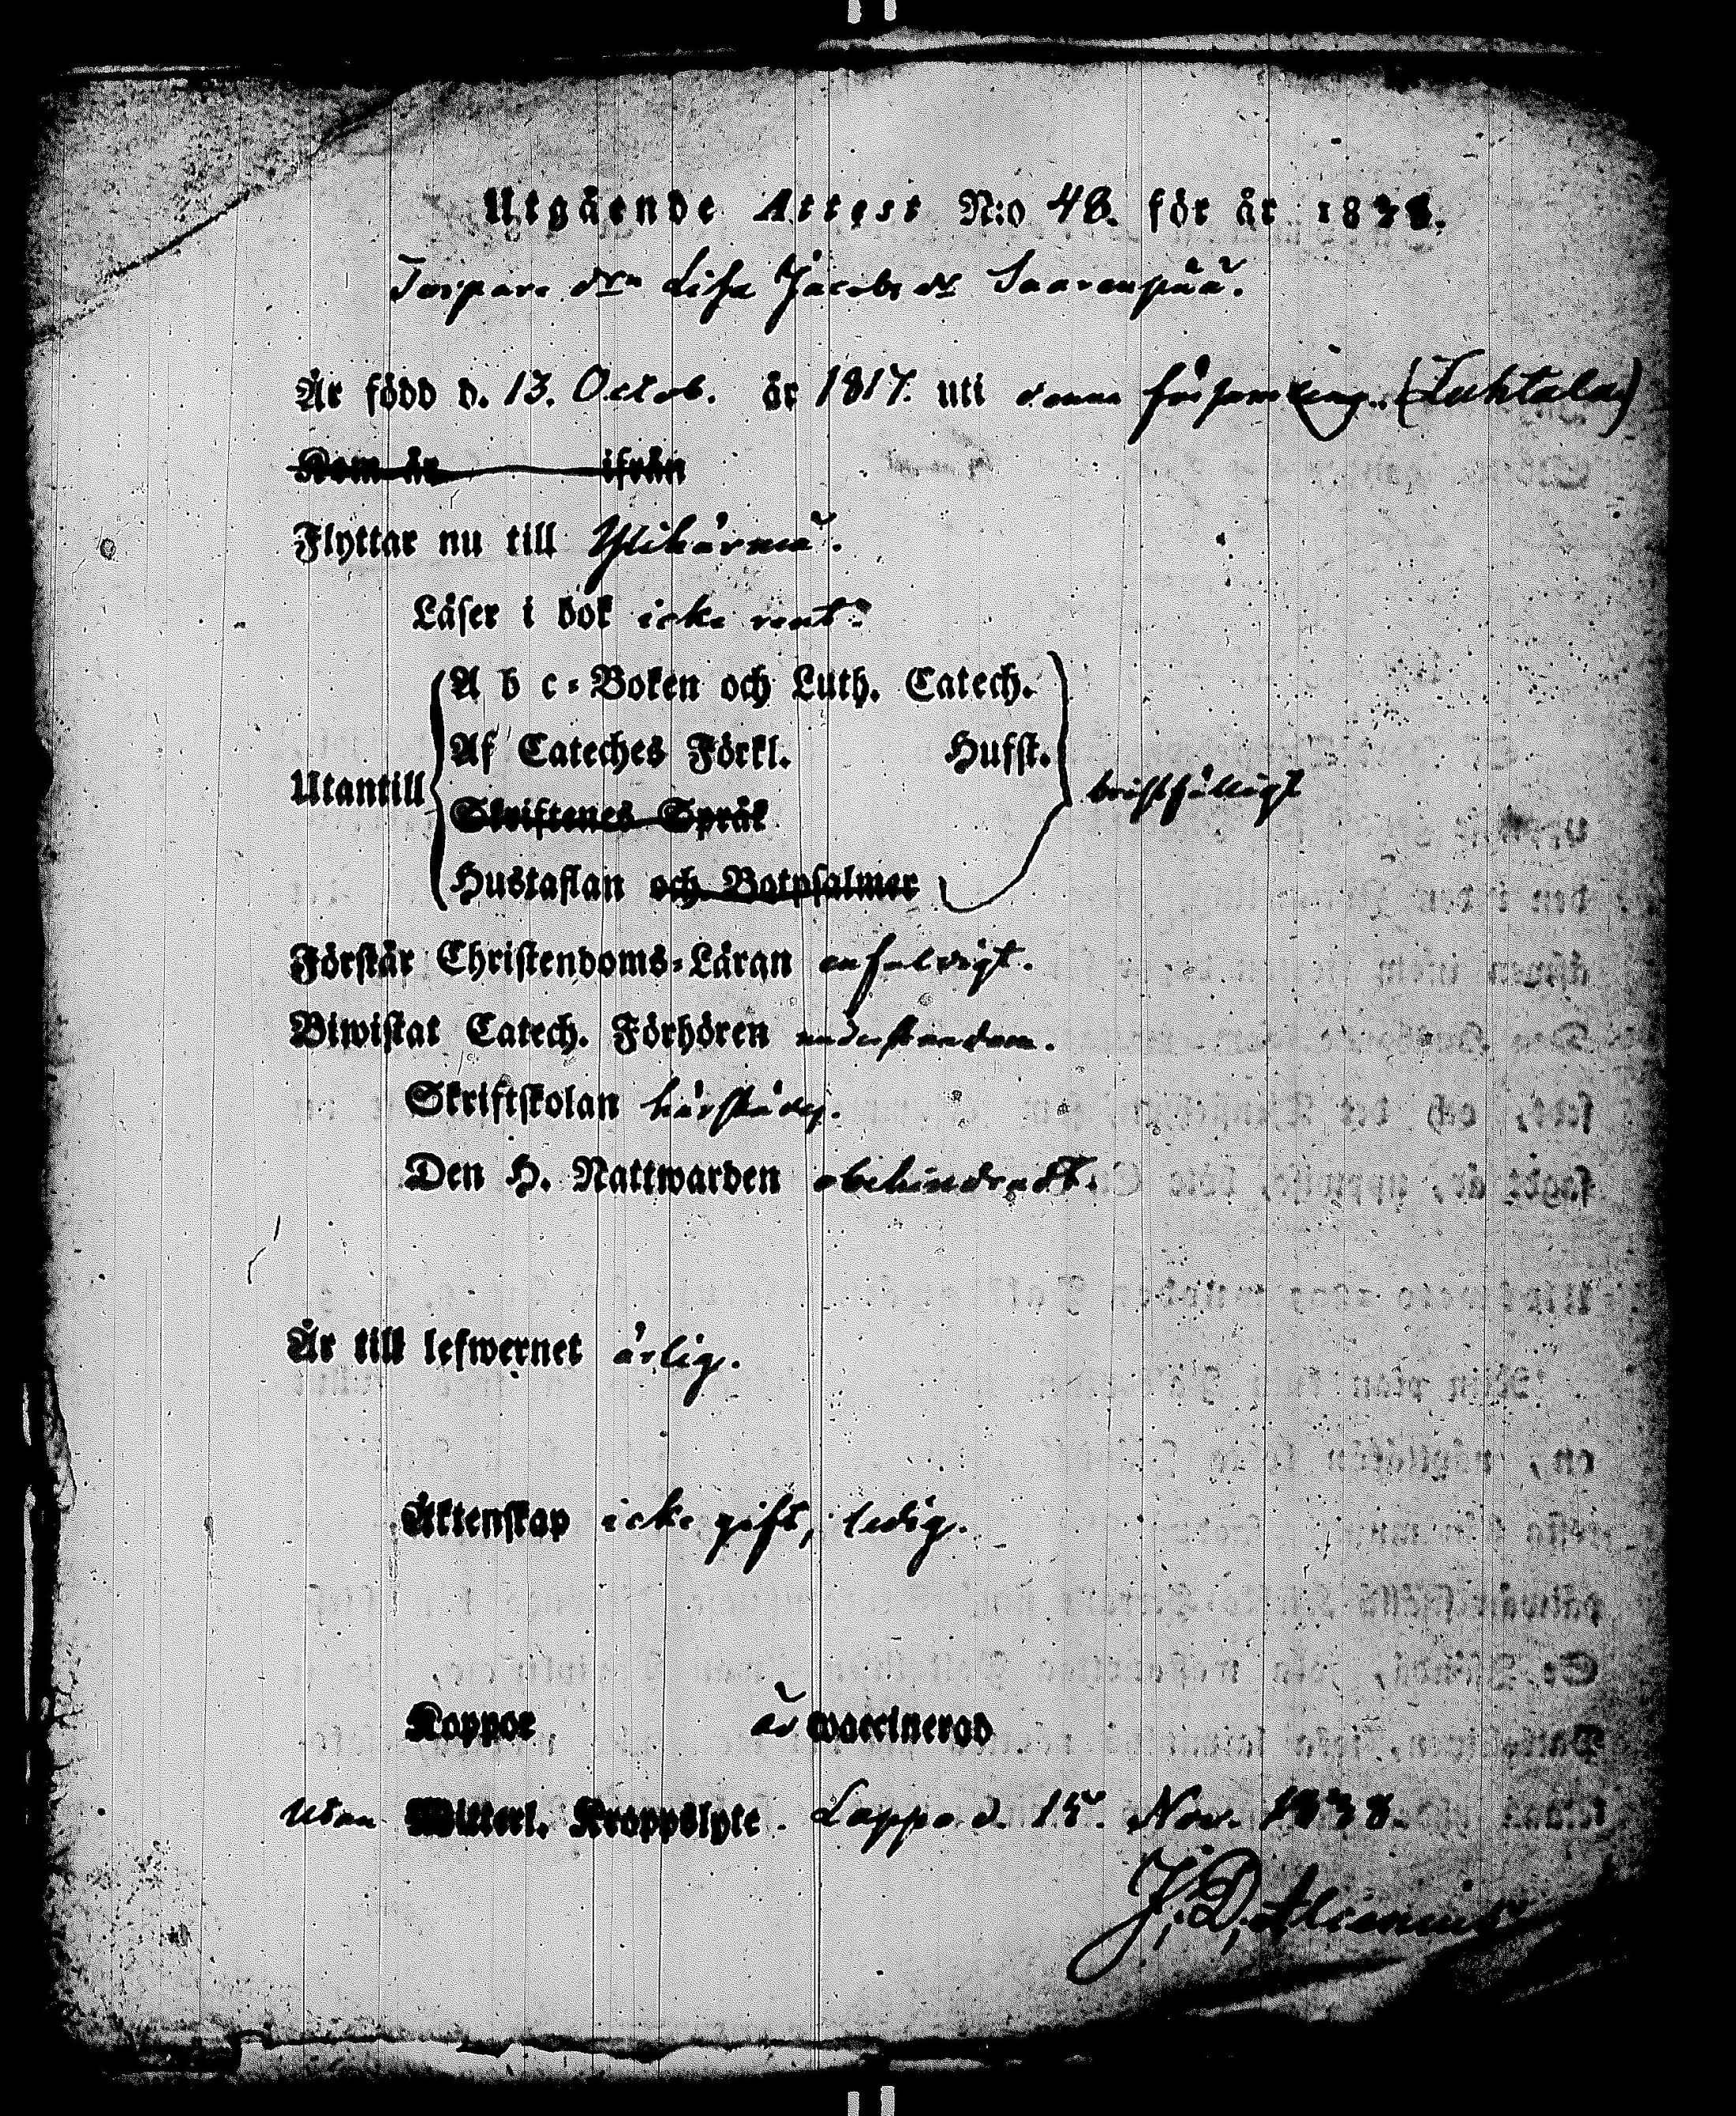 Utgående Attest N:o 48. för år 1838.
Torpare drn Lisa Jacobs dr Saarenpää.
Är född d. 13. Octob. år 1817. uti denna församling. (Luhtala)
Kom år ifrån
Flyttar nu till Ylihärmä.
Läser i bok icke rent.
A b c-Boken och Luth. Catech.
Af Cateches Förkl. Husst.
Utantill bristfälligt
Skriftenes Språk
Hustaflan och Botpsalmer
Förstår Christendoms-Läran enfaldigt.
Biwistat Catech. Förhören understundom.
Skriftskolan härstädes.
Den H. Nattwarden obehindradt.
Är till lefwernet ärlig.
Äktenskap icke gift, ledig.
Koppor är waccinerad
utan Witterl. Kroppslyte. Lappo d. 15. Nov. 1838.
J. D. Alcenius